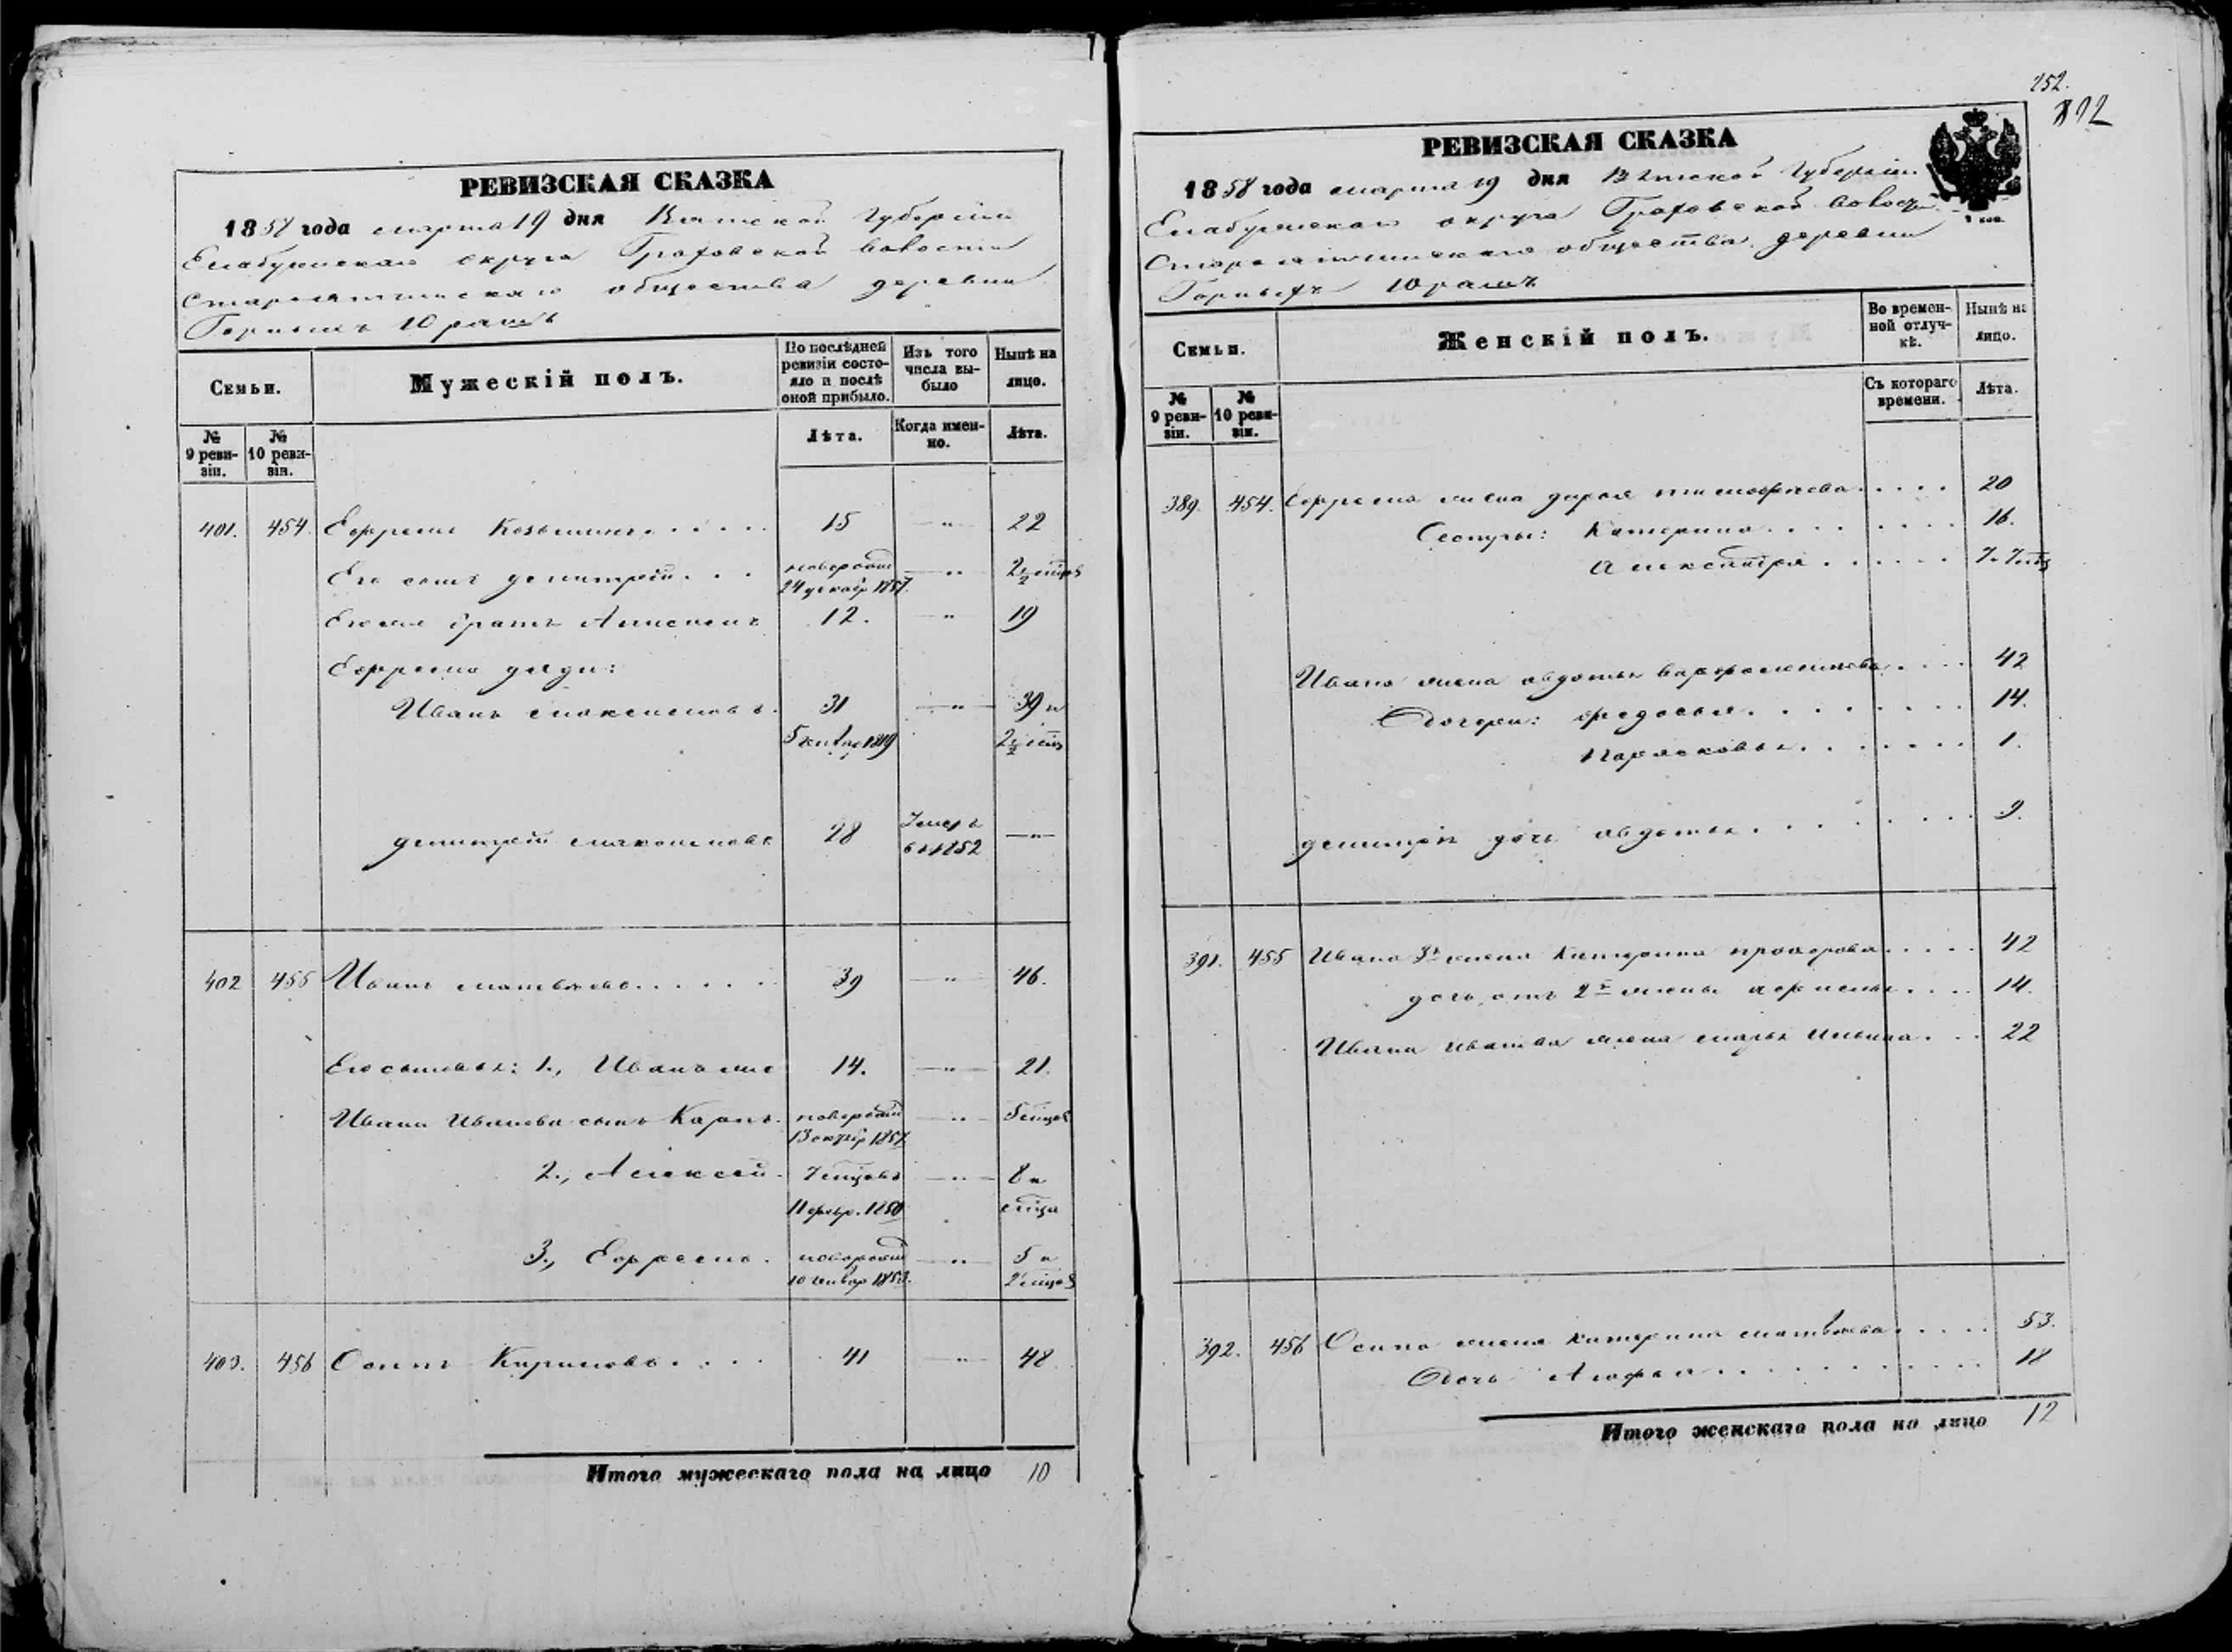 РЕВИЗСКАЯ СКАЗКА
1858 года марта 19 дня Вятской Губерніи
Елабужскаго округа Граховской волости
общества деревни
Горныхъ Юрашъ
Семьи.
Мужескій полъ.
По послѣдней ревизіи состояло и послѣ оной прибыло.
Изъ того числа выбыло
Нынѣ на лицо.
№ 9 ревизіи.
№ 10 ревизіи.
Лѣта.
Когда именно.
Лѣта.
401. 454. Ефремъ Козьминъ..... 15 —"— 22
Его сынъ Дмитрей... новорожд 24 декабр 1857. —"— 2½ мцовъ
Ефрема братъ 12. —"— 19
Ефрема дяди:
Иванъ Максимовъ. 31 —"— 39 и
2½ мцо
Дмитрей Максимовъ 28 Умеръ въ 1852 —"—
402 455 Иванъ Матвѣевъ...... 39 —"— 46.
Его сыновья: 1., Иванъ 14. —"— 21.
Ивана Иванова сынъ Карпъ. новорожд 13 октбр 1857 —"— 5 мцовъ
2., Алексей. 7 мцовъ —"— 8 и
11 февр. 1850 мцъ
3., Ефремъ. новорожд 10 Генвар 1853. —"— 5 и 2 мцовъ
403. 456 Осипъ Кириловъ.... 41 —"— 48
Итого мужескаго пола на лицо 10
252.
РЕВИЗСКАЯ СКАЗКА
1858 года марта 19 дня Вятской Губерніи
Елабужскаго округа Граховской волости
общества деревни
Горныхъ Юрашъ
1 коп.
Семьи.
Женскій полъ.
Во временной отлучкѣ.
Нынѣ на лицо.
№ 9 ревизіи.
№ 10 ревизіи.
Съ котораго времени.
Лѣта.
389. 454. Ефрема жена Дарья Тимофѣева..... 20
Сестры: Катерина........ 16.
Александра...... 7. 7 мцъ
Ивана жена Авдотья Варфоломеева.... 42
Дочери: Федосья......... 14.
Парасковья....... 1.
Дмитрія дочь Авдотья......... 9.
391. 455 Ивана 3я жена Катерина Прохорова..... 42
дочь отъ 2й жены .... 14.
Ивана Иванова жена Марья Ильина... 22
392. 456 Осипа жена Катерина Матвѣева..... 53.
Дочь Агафья........... 18
Итого женскаго пола на лицо 12